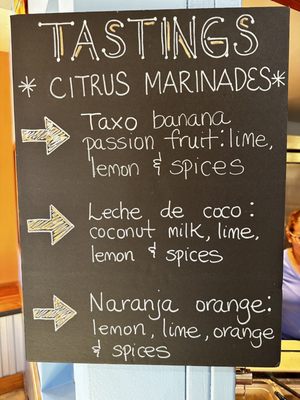 TASTINGS
* CITRUS MARINADES *
Taxo banana
passion fruit: lime,
lemon & spices
Leche de coco:
coconut milk, lime,
lemon & spices
Naranja orange:
lemon, lime, orange
& spices